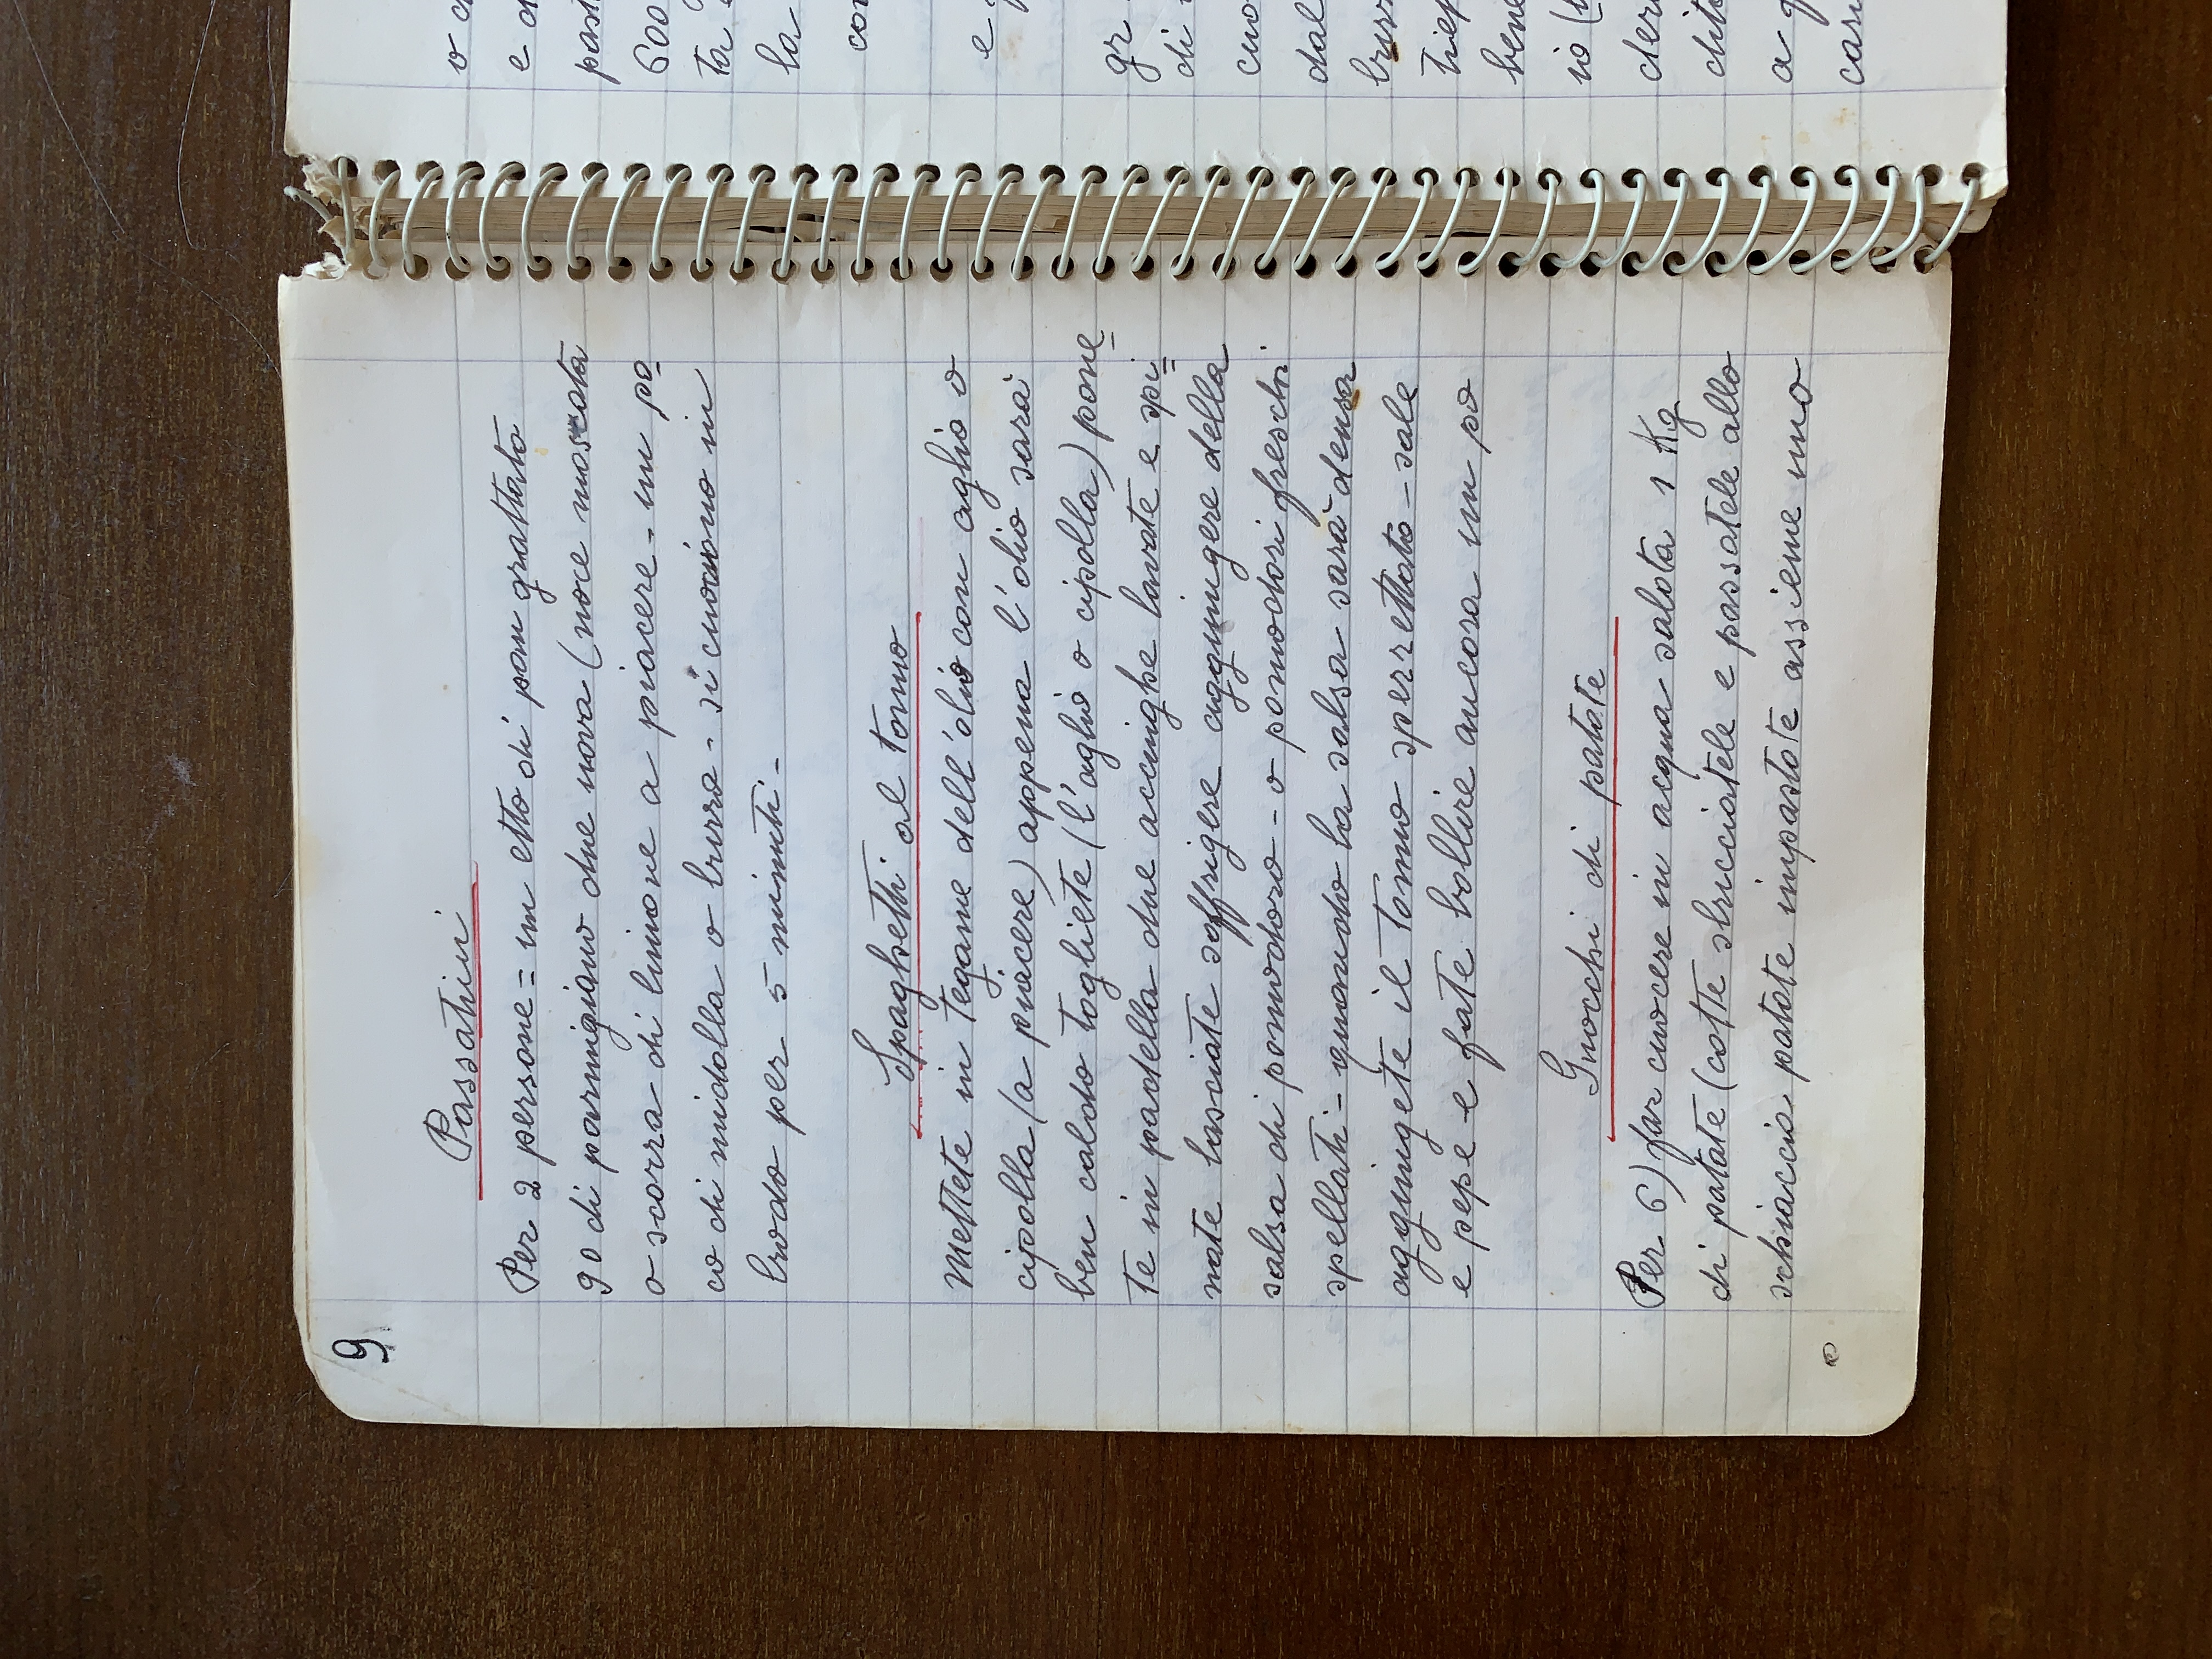 9
Passatini
Per 2 persone = un etto di pan grattato
90 di parmigiano due uova (noce moscata
o scorza di limone a piacere - un po
co di midolla o burro - si cuociono in
brodo per 5 minuti -
Spaghetti al tonno
Mettete in tegame dell'olio con aglio o
cipolla (a piacere) appena l'olio sarà
ben caldo togliete (l'aglio o cipolla) pone
te in padella due acciughe lavate e spi
nate lasciate soffrigere aggiungere della
salsa di pomodoro - o pomodori freschi
spellati - quando la salsa sarà densa
aggiungete il tonno spezzettato - sale
e pepe e fate bollire ancora un po
Gnocchi di patate
Per 6) far cuocere in acqua salata 1 Kg
di patate (cotte sbucciatele e passatele allo
schiaccia patate impastate assieme uno
o
e
past
600
ta
la
con
e
gr
di
cuo
dal
burr
tiep
bene
io
der
dit
a